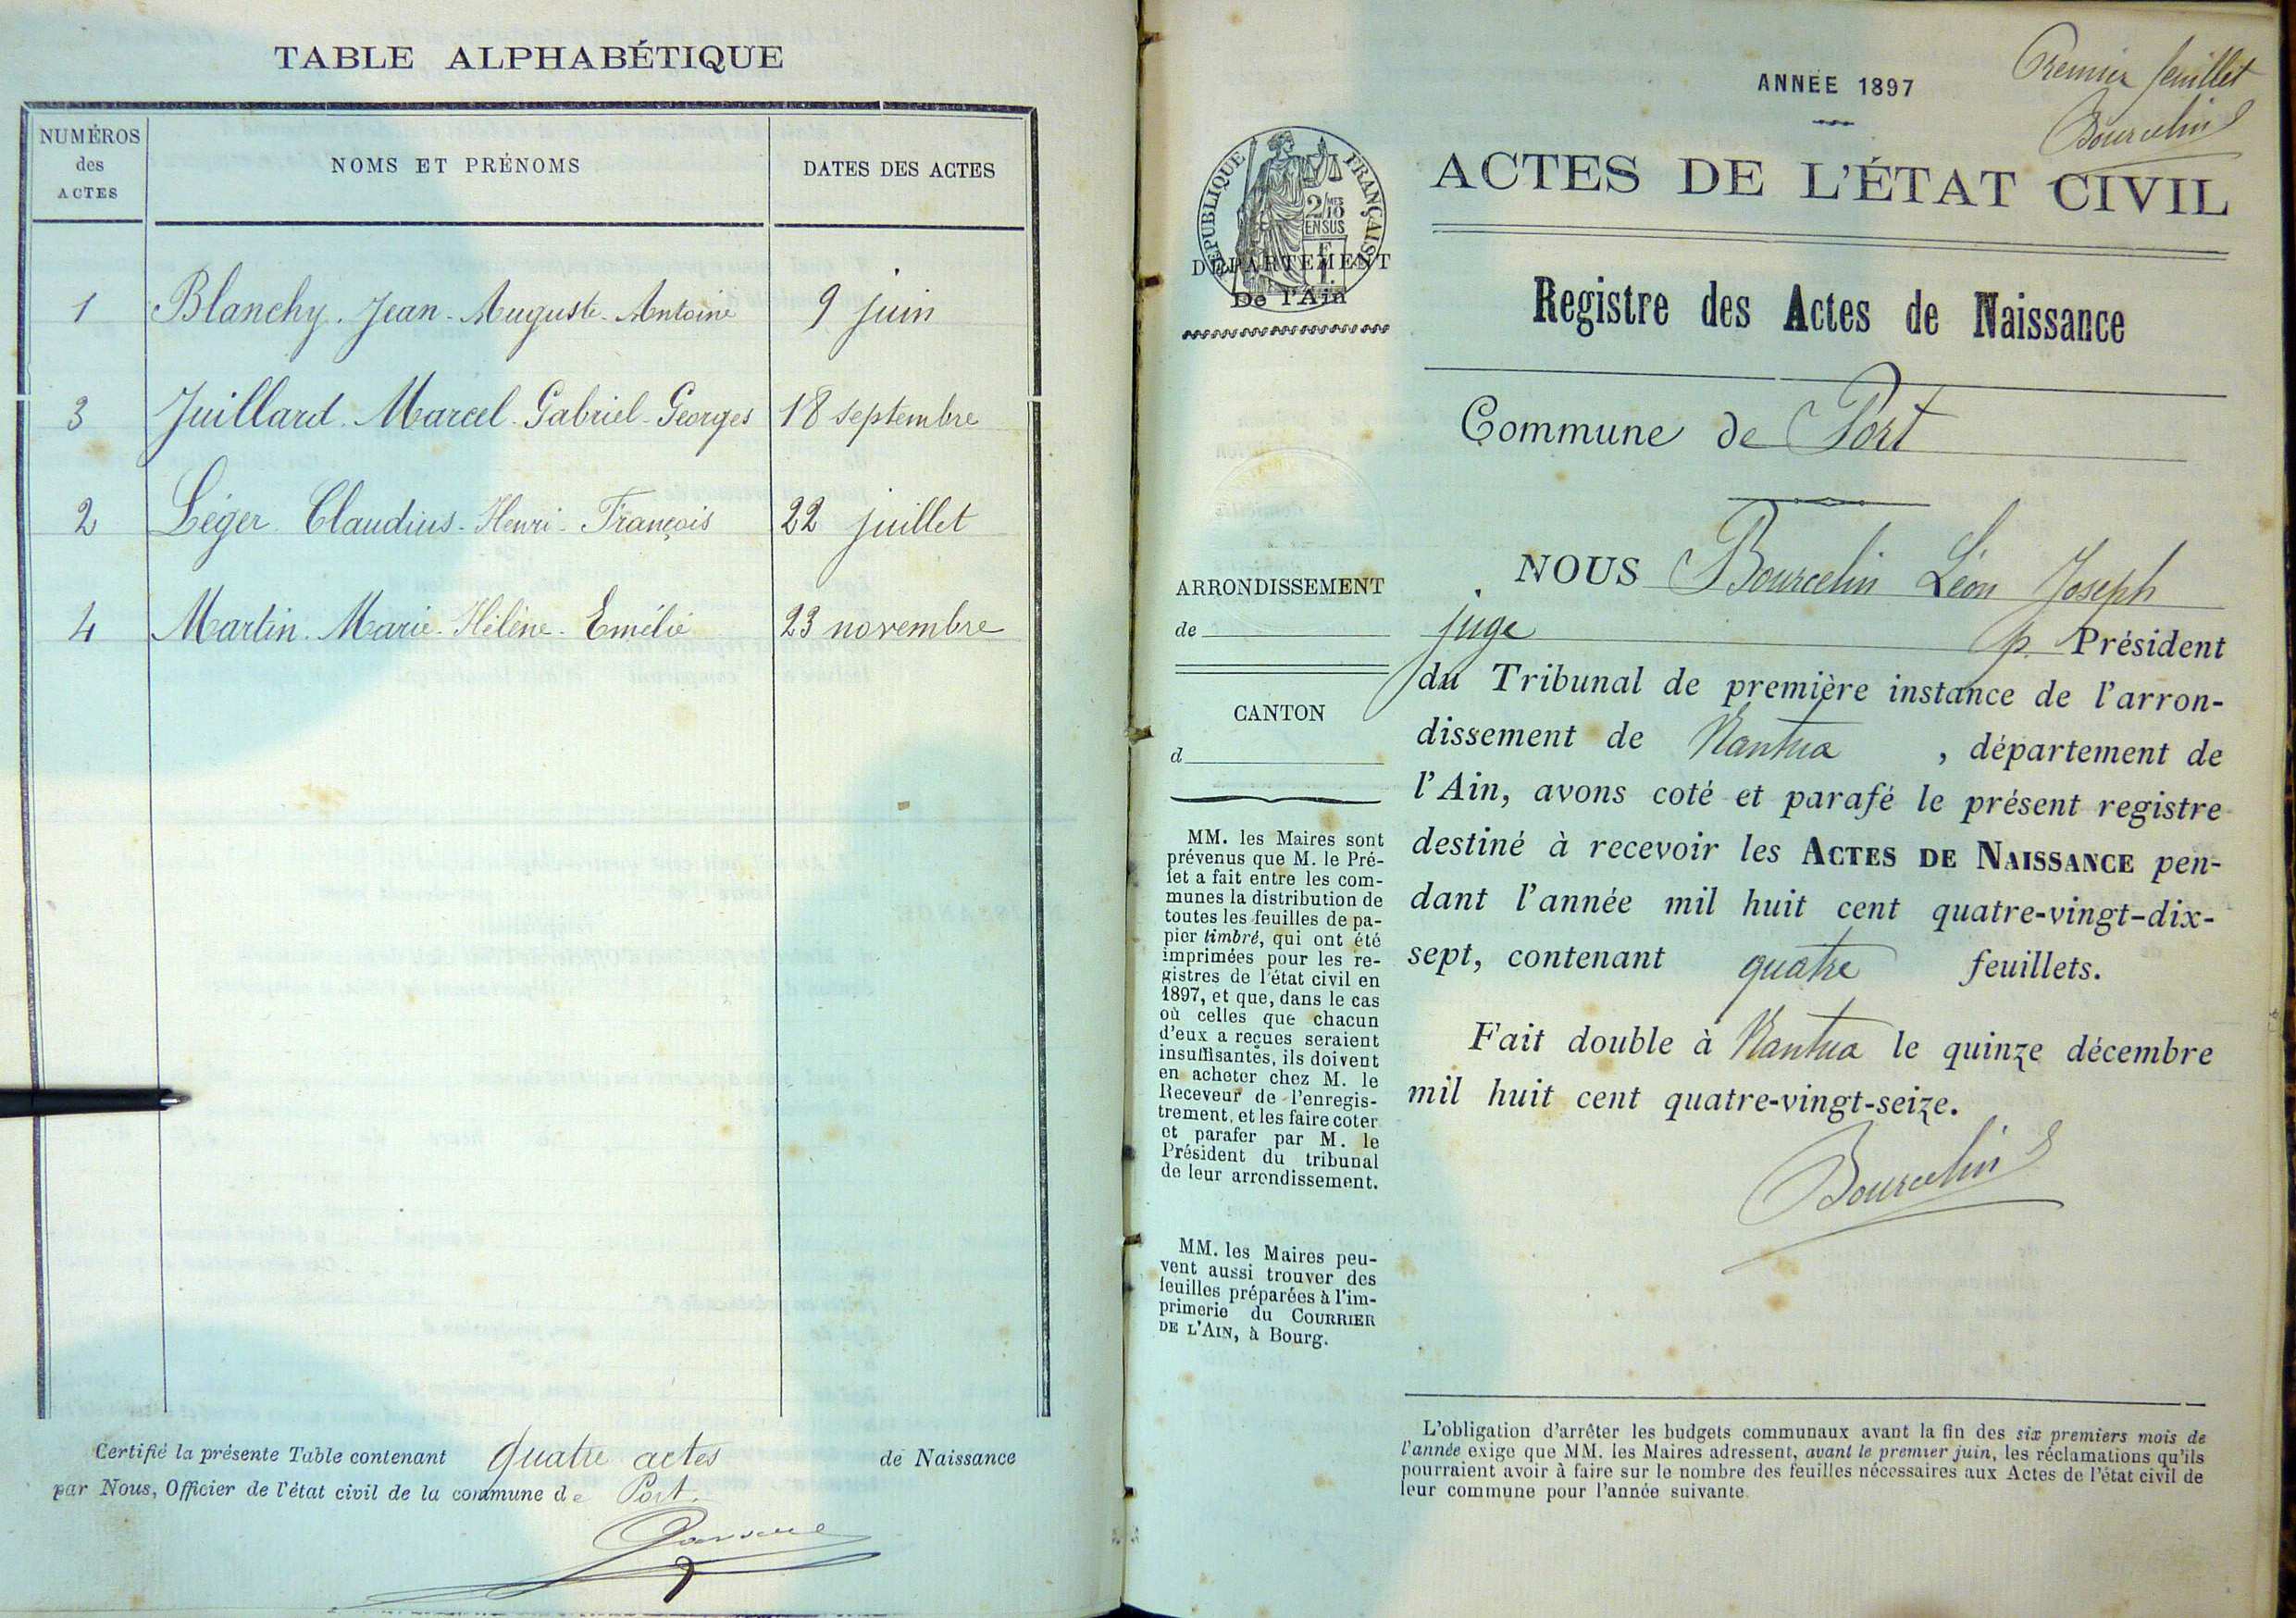 TABLE ALPHABÉTIQUE
NUMÉROS
des
ACTES
NOMS ET PRÉNOMS
DATES DES ACTES
1 Blanchy. Jean-Auguste-Antoine 9 juin
3 Juillard. Marcel-Gabriel-Georges 18 septembre
2 Léger. Claudius-Henri-François 22 juillet
4 Martin. Marie-Hélène-Emélie 23 novembre
Certifié la présente Table contenant quatre actes de Naissance
par Nous, Officier de l'état civil de la commune de Port.
Premier feuillet
Bourcelin
ANNÉE 1897
ACTES DE L'ÉTAT CIVIL
RÉPUBLIQUE FRANÇAISE
2/10 MES
EN SUS
DÉPARTEMENT
De l'Ain
Registre des Actes de Naissance
Commune de Port
ARRONDISSEMENT
de
CANTON
d
MM. les Maires sont
prévenus que M. le Pré-
fet a fait entre les com-
munes la distribution de
toutes les feuilles de pa-
pier timbré, qui ont été
imprimées pour les re-
gistres de l'état civil en
1897, et que, dans le cas
où celles que chacun
d'eux a reçues seraient
insuffisantes, ils doivent
en acheter chez M. le
Receveur de l'enregis-
trement, et les faire coter
et parafer par M. le
Président du tribunal
de leur arrondissement.
MM. les Maires peu-
vent aussi trouver des
feuilles préparées à l'im-
primerie du COURRIER
DE L'AIN, à Bourg.
NOUS Bourcelin Léon Joseph
juge p. Président
du Tribunal de première instance de l'arron-
dissement de Nantua , département de
l'Ain, avons coté et parafé le présent registre
destiné à recevoir les ACTES DE NAISSANCE pen-
dant l'année mil huit cent quatre-vingt-dix-
sept, contenant quatre feuillets.
Fait double à Nantua le quinze décembre
mil huit cent quatre-vingt-seize.
Bourcelin
L'obligation d'arrêter les budgets communaux avant la fin des six premiers mois de
l'année exige que MM. les Maires adressent, avant le premier juin, les réclamations qu'ils
pourraient avoir à faire sur le nombre des feuilles nécessaires aux Actes de l'état civil de
leur commune pour l'année suivante.